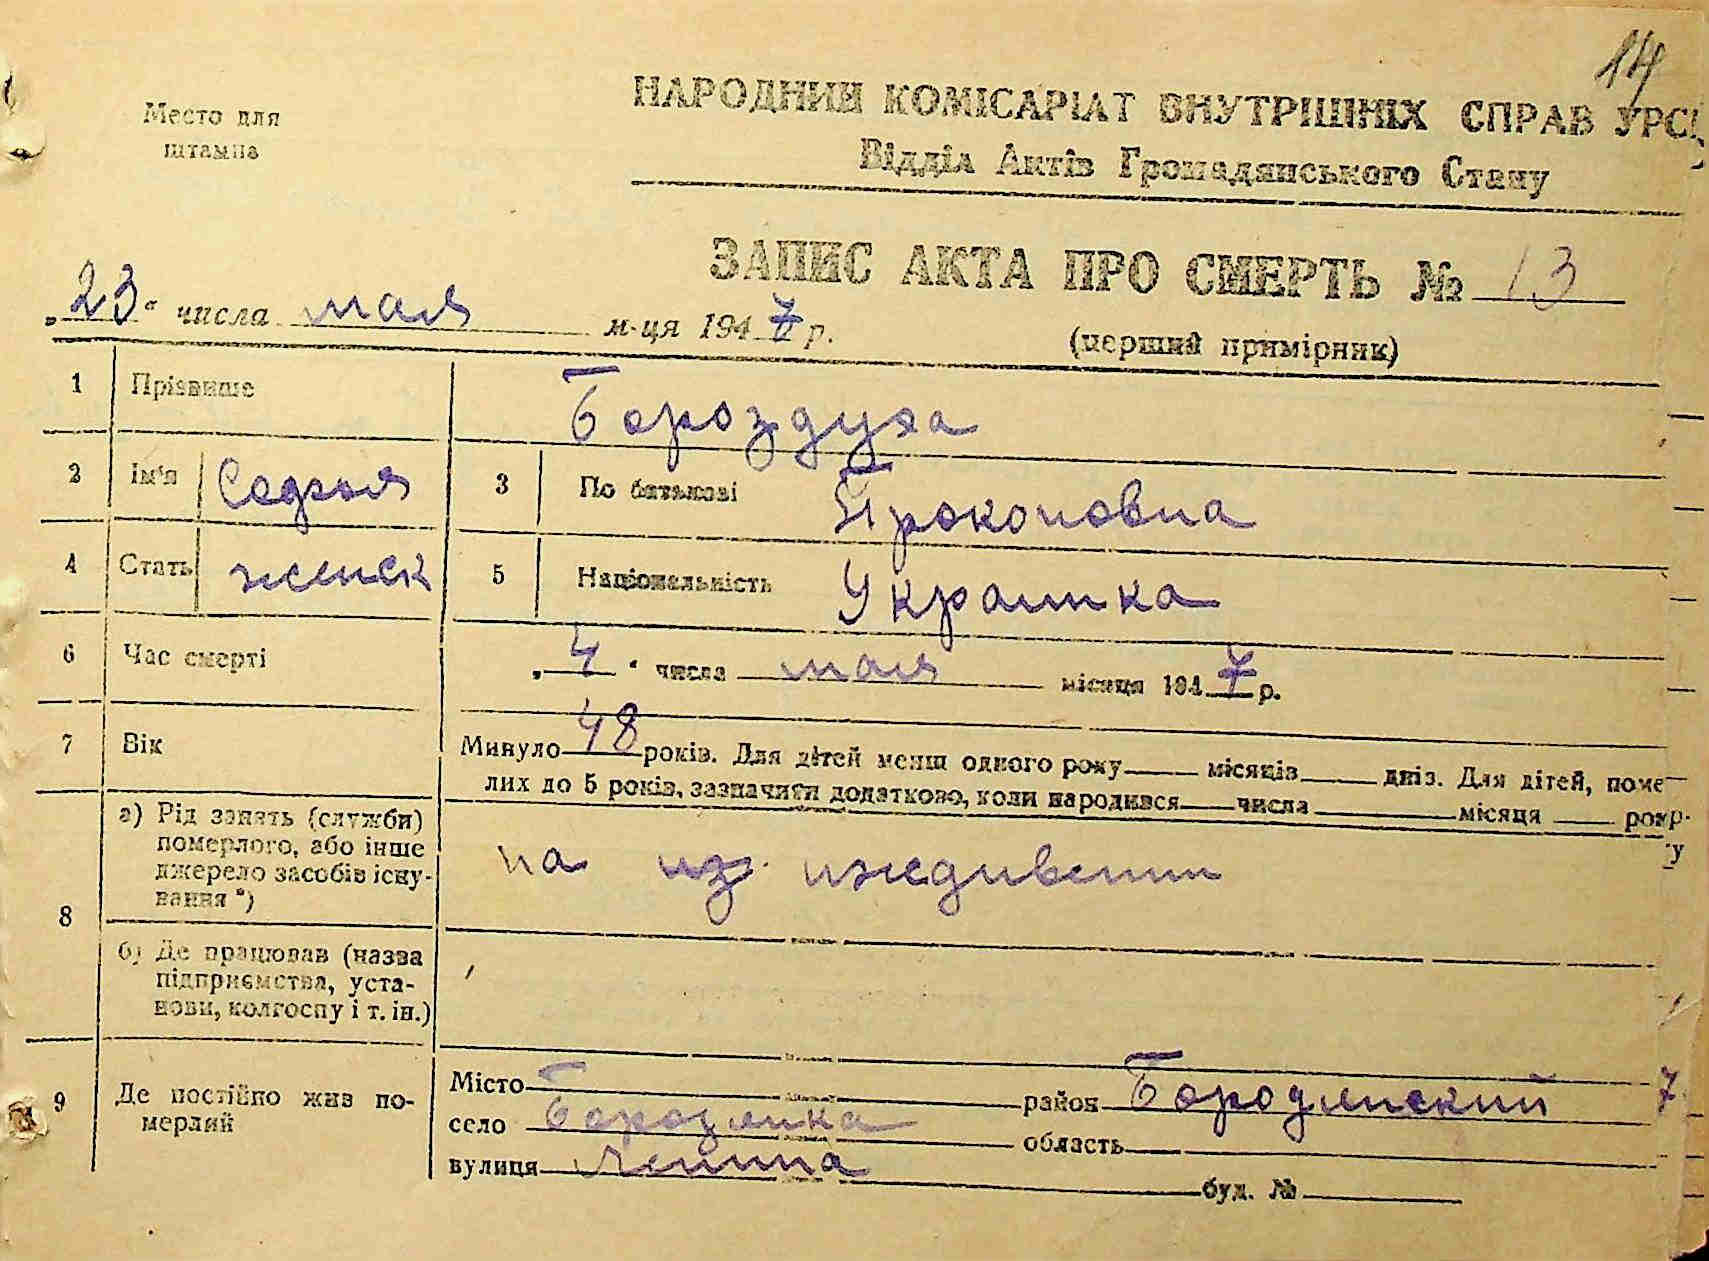 14
Место для
штампа
НАРОДНИЙ КОМІСАРІАТ ВНУТРІШНІХ СПРАВ УРСР
Відділ Актів Громадянського Стану
ЗАПИС АКТА ПРО СМЕРТЬ № 13
„23“ числа мая м-ця 1947 р.
(перший примірник)
1 Прізвище Бороздуха
2 Ім'я 3 По батькові Прокоповна
4 Стать женск 5 Національність Украинка
6 Час смерті „4“ числа мая місяця 1947 р.
7 Вік Минуло 48 років. Для дітей менш одного року місяців днів. Для дітей, поме-
лих до 5 років, зазначити додатково, коли народився числа місяця року
8 а) Рід занять (служби)
померлого, або інше
джерело засобів існу-
вання *)
на иждивении
б) Де працював (назва
підприємства, уста-
нови, колгоспу і т. ін.)
9 Де постійно жив по-
мерлий
Місто район Бородянский
село Бородянка область
вулиця Ленина буд. №